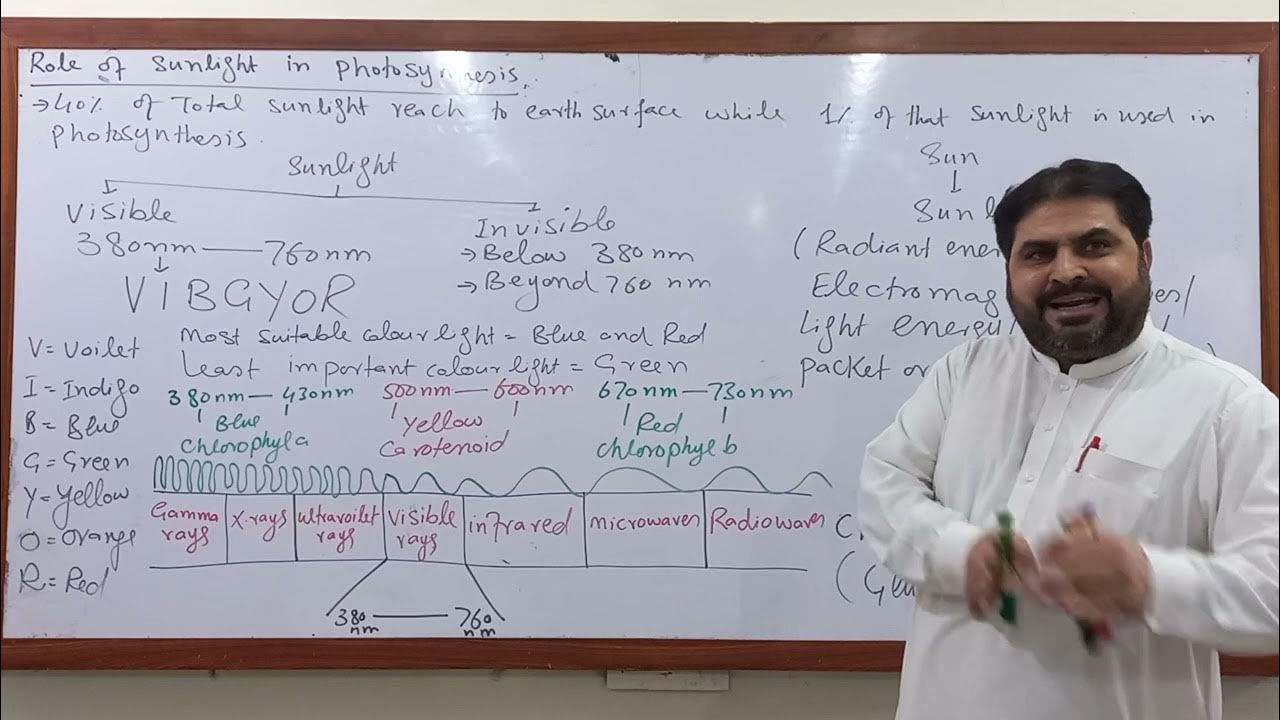 Role of sunlight in photosynthesis.
→ 40% of Total sunlight reach to earth surface while 1% of that sunlight is used in
photosynthesis.
Sunlight
Visible
380nm — 760nm
VIBGYOR
Invisible
→ Below 380 nm
→ Beyond 760 nm
Sun
Sun
(Radiant
Electromag
light energy/
packet
Most suitable colour light = Blue and Red
Least important colour light = Green
V = Voilet
I = Indigo
B = Blue
G = Green
Y = Yellow
O = Orange
R = Red
380nm — 430nm
Blue
Chlorophyl a
500nm — 600nm
Yellow
Carotenoid
670nm — 730nm
Red
Chlorophyl b
Gamma rays
X-rays
ultravoilet rays
Visible rays
infrared
microwaves
Radiowaves
380 nm — 760 nm